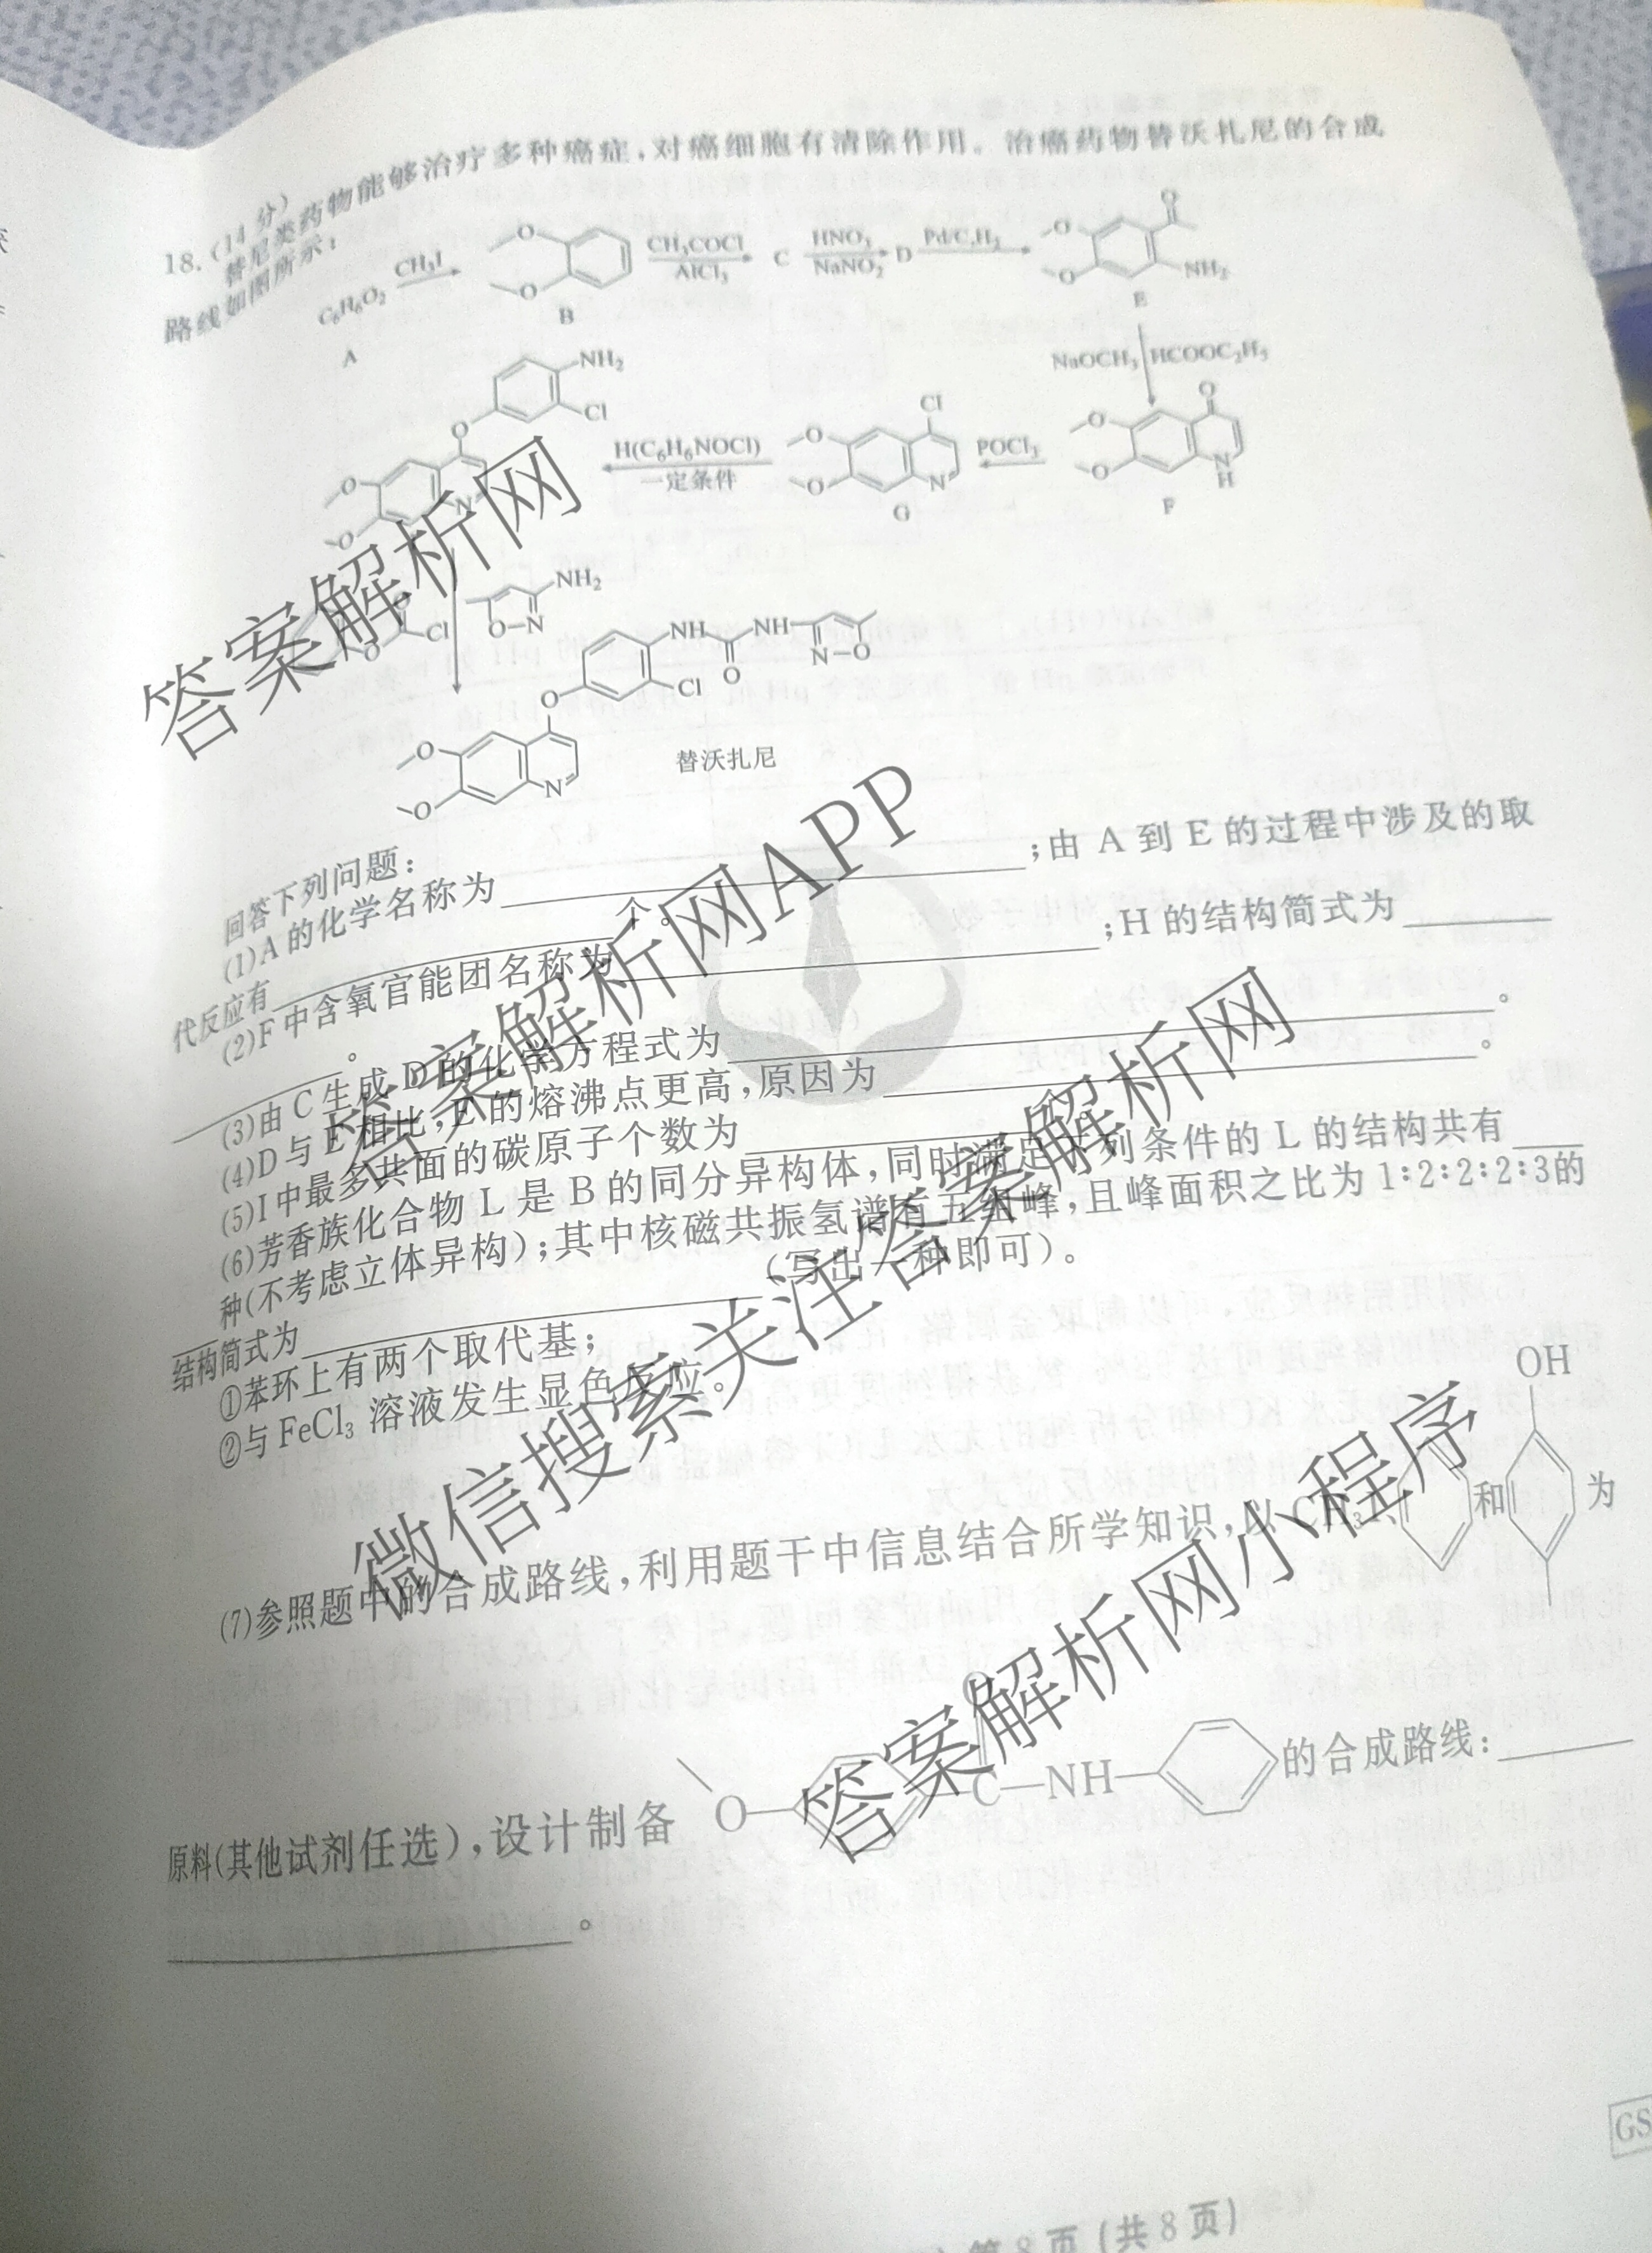 18.(14分)
替尼类药物能够治疗多种癌症,对癌细胞有清除作用。治癌药物替沃扎尼的合成
路线如图所示:
C₆H₆O₂ CH₃I O O CH₃COCl AlCl₃ C HNO₃ NaNO₂ D Pd/C,H₂ O O O NH₂
A B E
NaOCH₃ HCOOC₂H₅
NH₂ Cl O O O N H(C₆H₆NOCl) 一定条件 Cl O O N POCl₃ O O O N H
G F
O Cl O NH₂ O—N
NH NH O Cl N—O O O O N
替沃扎尼
回答下列问题:
(1)A的化学名称为;由A到E的过程中涉及的取
代反应有个。
(2)F中含氧官能团名称为;H的结构简式为
。
(3)由C生成D的化学方程式为。
(4)D与E相比,E的熔沸点更高,原因为。
(5)I中最多共面的碳原子个数为
(6)芳香族化合物L是B的同分异构体,同时满足下列条件的L的结构共有
种(不考虑立体异构);其中核磁共振氢谱有五组峰,且峰面积之比为1:2:2:2:3的
结构简式为(写出一种即可)。
①苯环上有两个取代基;
②与FeCl₃溶液发生显色反应。
(7)参照题中的合成路线,利用题干中信息结合所学知识,以CH₃I、和 OH 为
原料(其他试剂任选),设计制备 O O C—NH 的合成路线:
。
第8页(共8页)
GS
答案解析网
答案解析网APP
微信搜索关注答案解析网
答案解析网小程序